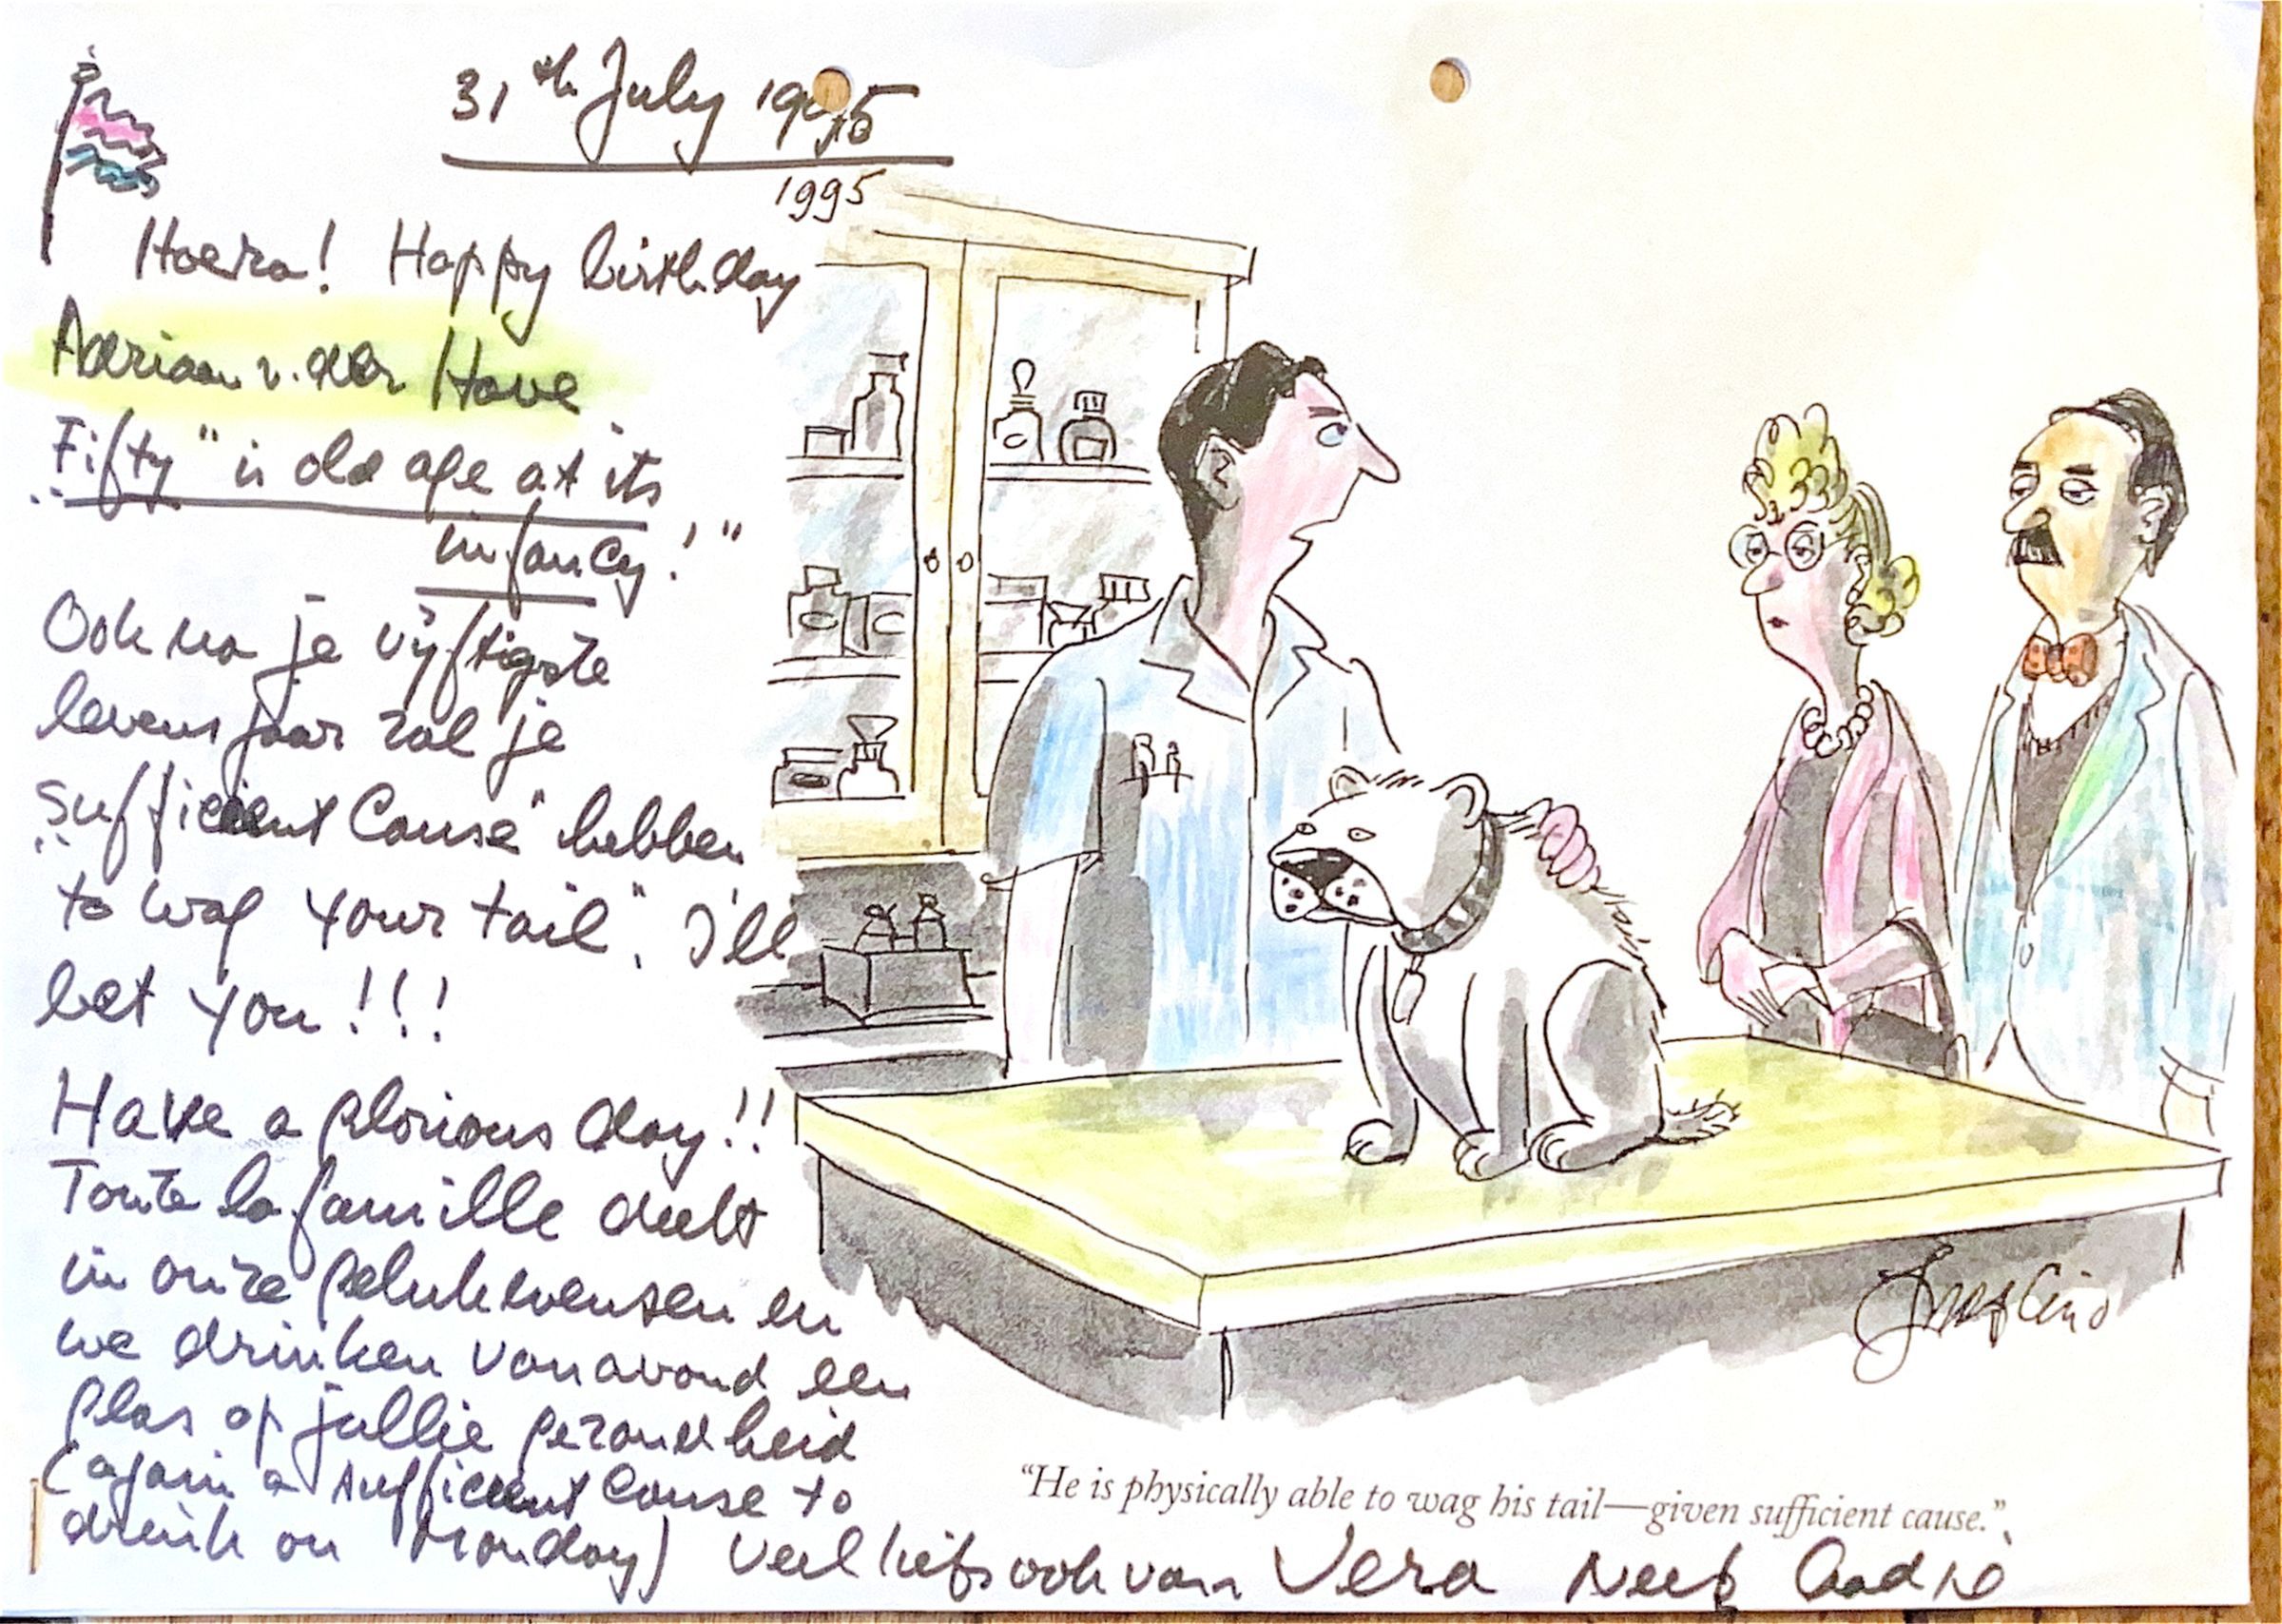 31th July 1995
1995
Hoera! Happy birthday
Adriaan v. der Hove
"Fifty" is old age at its
infancy!"
Ook na je vijftigste
levensjaar zal je
"sufficient Cause" hebben
to wag your tail". I'll
bet you!!!
Have a glorious day!!
Toute la famille deelt
in onze gelukwensen en
we drinken vanavond een
glas op jullie gezondheid
(again a sufficient Cause to
drink on Monday) Veel liefs ook van Vera Neef Aadje
"He is physically able to wag his tail—given sufficient cause."